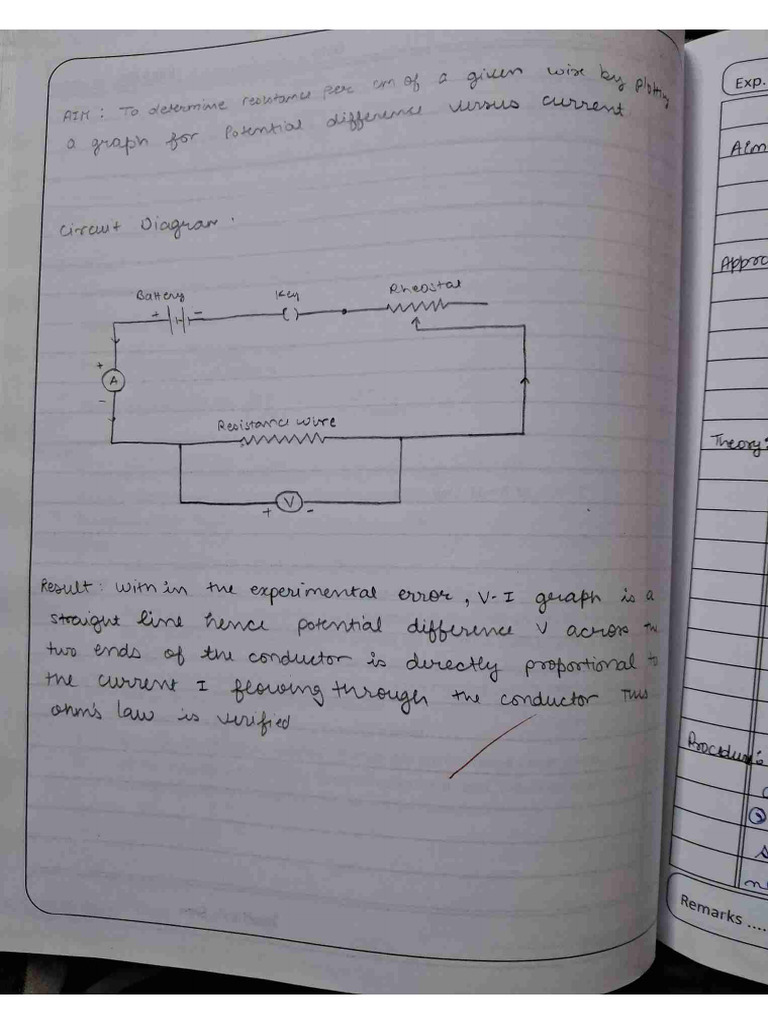 AIM : To determine resistance per cm of a given wire by plotting
a graph for Potential difference versus current.
Circuit Diagram.
Battery
Key
Rheostat
+ -
+
A
-
Resistance wire
V
+ -
Result : with in the experimental error, V-I graph is a
straight line hence potential difference V across the
two ends of the conductor is directly proportional to
the current I flowing through the conductor Thus
ohm's law is verified
Exp.
Aim
Appro
Theory :
Procedure :
②
Remarks ....